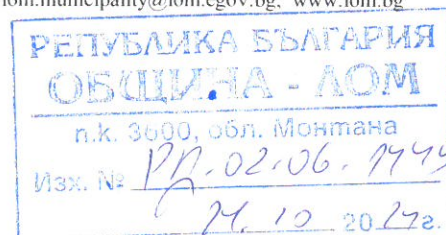 lom.municipality@lom.egov.bg, www.lom.bg
РЕПУБЛИКА БЪЛГАРИЯ
ОБЩИНА - ЛОМ
п.к. 3600, обл. Монтана
Изх. № РД. 02-06. 1449
21. 10 2024г.